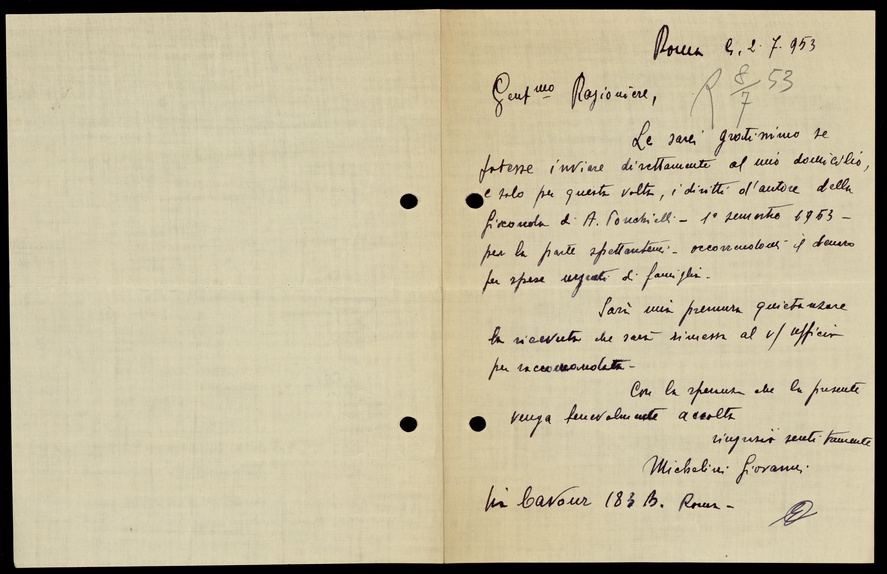 Roma li, 2.7.953
R 8/7 53
Gent.mo Ragioniere,
Le sarei gratissimo se
potesse inviare direttamente al mio domicilio,
e solo per questa volta, i diritti d'autore della
Gioconda di A. Ponchielli - 1° semestre 1953 -
per la parte spettantemi - occorrendomi il denaro
per spese urgenti di famiglia.
Sarà mia premura quietanzare
la ricevuta che sarà rimessa al v/ ufficio
per raccomandata -
Con la speranza che la presente
venga benevolmente accolta
ringrazio sentitamente
Michelini Giovanni.
Via Cavour 183 B. Roma -